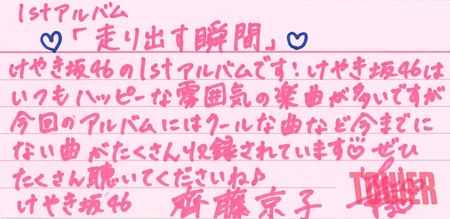 1stアルバム
♡「走り出す瞬間」♡
けやき坂46の1stアルバムです! けやき坂46は
いつもハッピーな雰囲気の楽曲が多いですが
今回のアルバムにはクールな曲など今までに
ない曲がたくさん収録されています♡ ぜひ
たくさん聴いてくださいね♪
けやき坂46 齊藤京子
TOWER